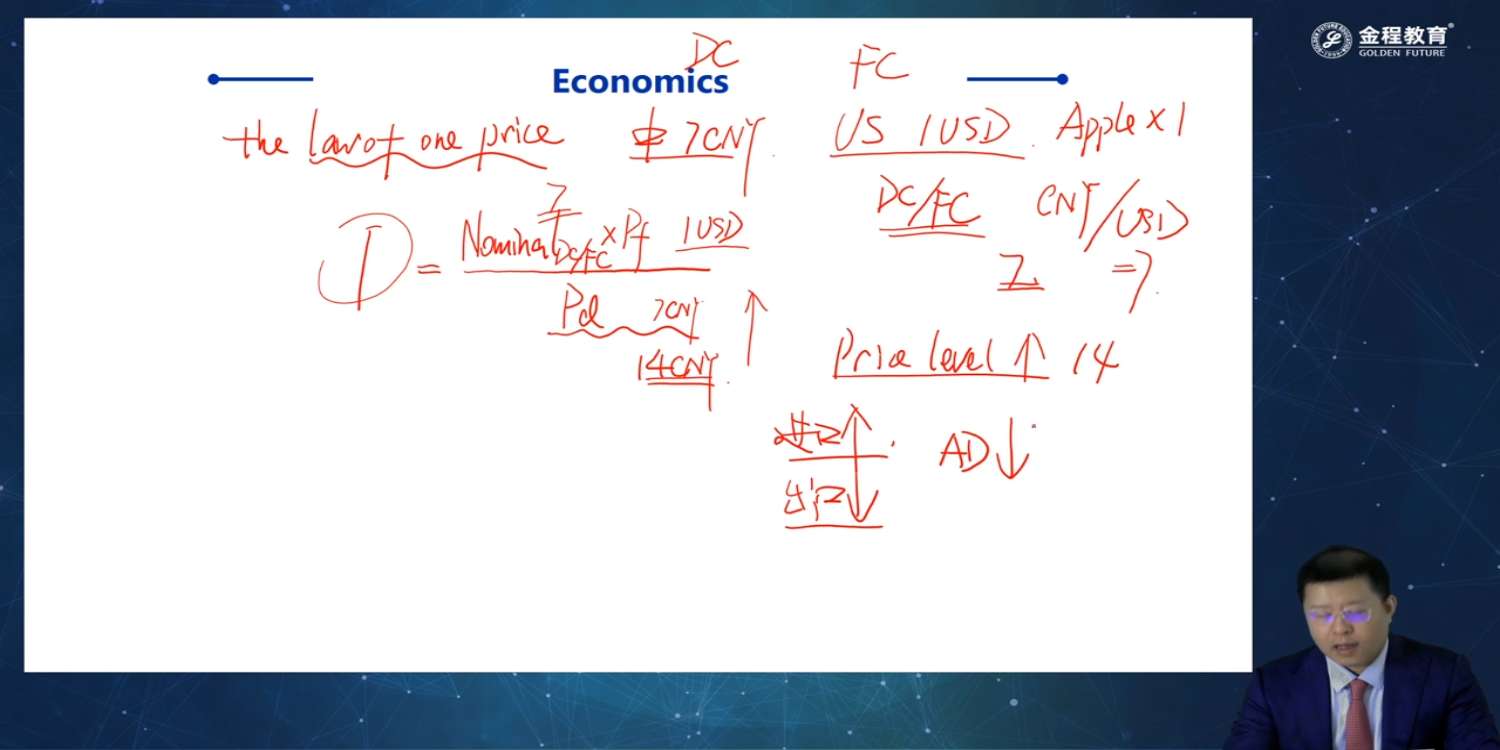 金程教育
GOLDEN FUTURE
DC
FC
Economics
the law of one price 中 7CNY US 1USD Apple×1
DC/FC CNY/USD
7
1 = Nominal DC/FC × Pf 1USD
7 = 7
Pd 7CNY
14CNY
Price level ↑ 14
进口 ↑ AD ↓
出口 ↓